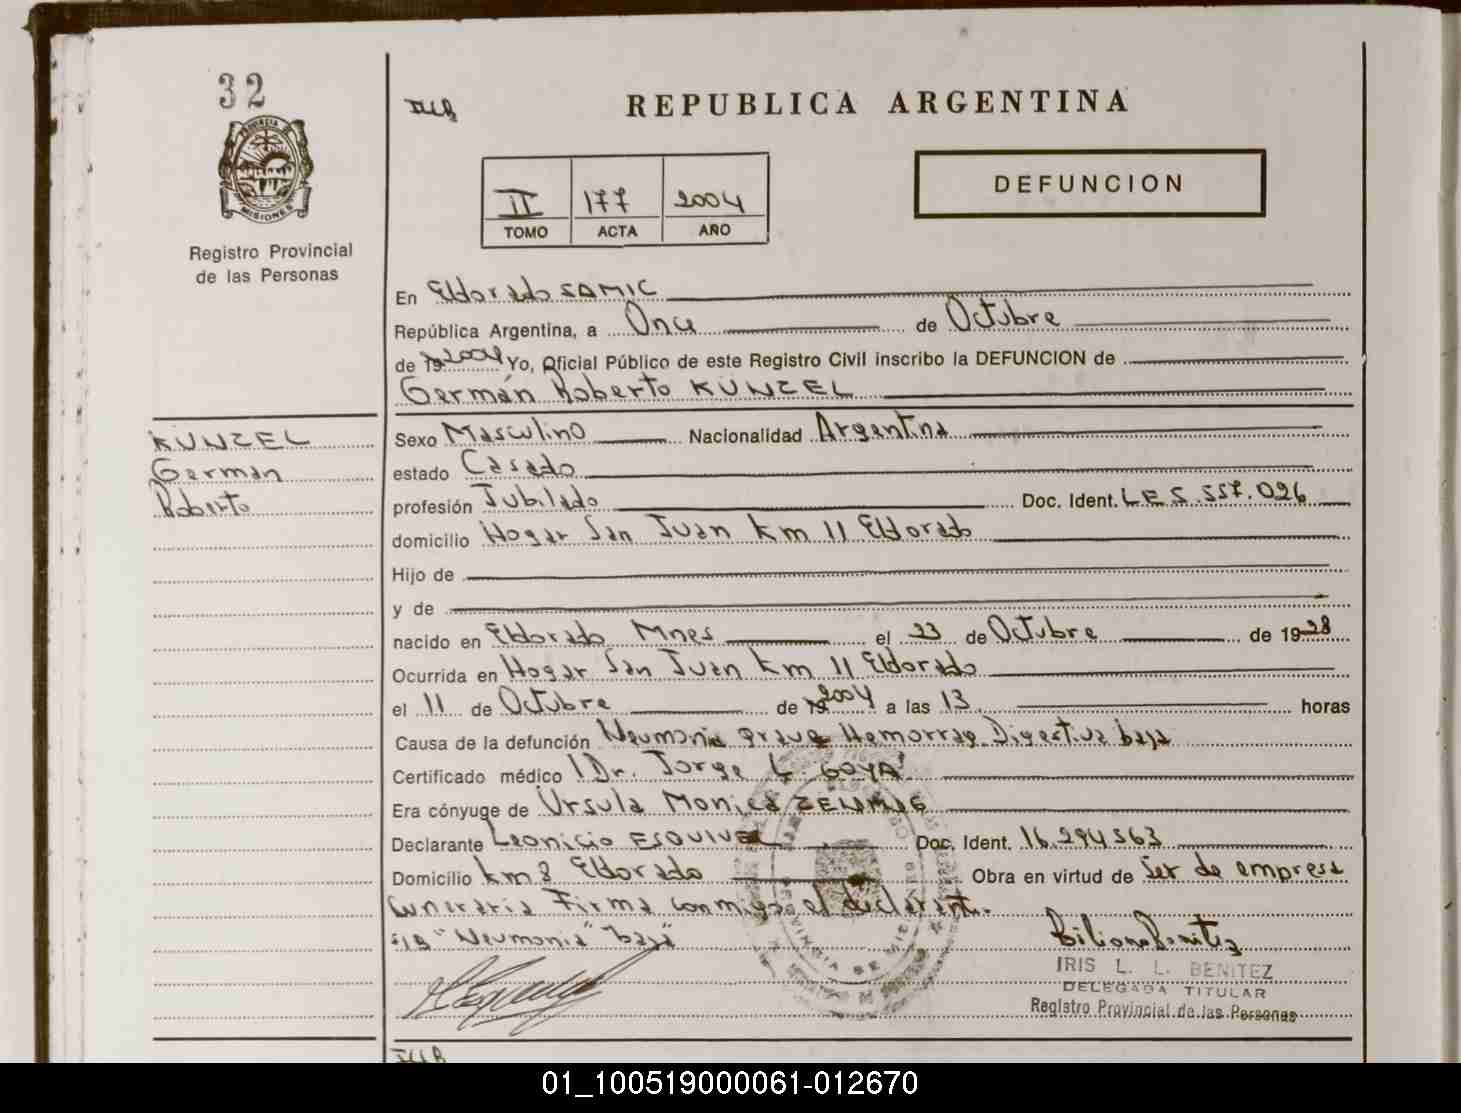 32
PROVINCIA DE
MISIONES
Registro Provincial
de las Personas
REPUBLICA ARGENTINA
DEFUNCION
II 177 2004
TOMO ACTA AÑO
En Eldorado SAMIC
República Argentina, a Once de Octubre
de 19 2004 Yo, Oficial Público de este Registro Civil inscribo la DEFUNCION de
Germán Roberto KÜNZEL
KUNZEL
German
Roberto
Sexo Masculino Nacionalidad Argentina
estado Casado
profesión Jubilado Doc. Ident. L.E 5.557.026
domicilio Hogar San Juan Km 11 Eldorado
Hijo de
y de
nacido en Eldorado Mnes el 23 de Octubre de 1928
Ocurrida en Hogar San Juan Km 11 Eldorado
el 11 de Octubre de 19 2004 a las 13 horas
Causa de la defunción Neumonia grave Hemorrag Digestiva baja
Certificado médico Dr. Jorge L. GOYA
Era cónyuge de Ursula Monica
Declarante Leonicio ESQUIVEL Doc. Ident. 16.294563
Domicilio Km 8 Eldorado Obra en virtud de Ser de empresa
funeraria Firma conmigo el declarante.
"Neumonia" "baja"
IRIS L. L. BENITEZ
DELEGADA TITULAR
Registro Provincial de las Personas
01_100519000061-012670